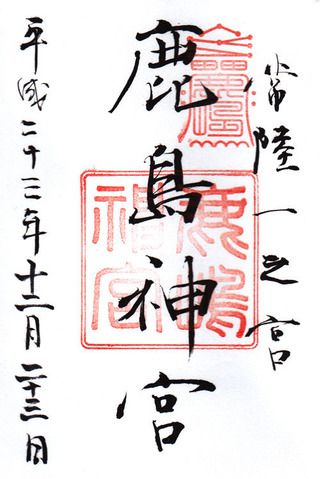 常陸一之宮
鹿島神宮
平成二十三年十二月二十三日
鹿嶋
神宮